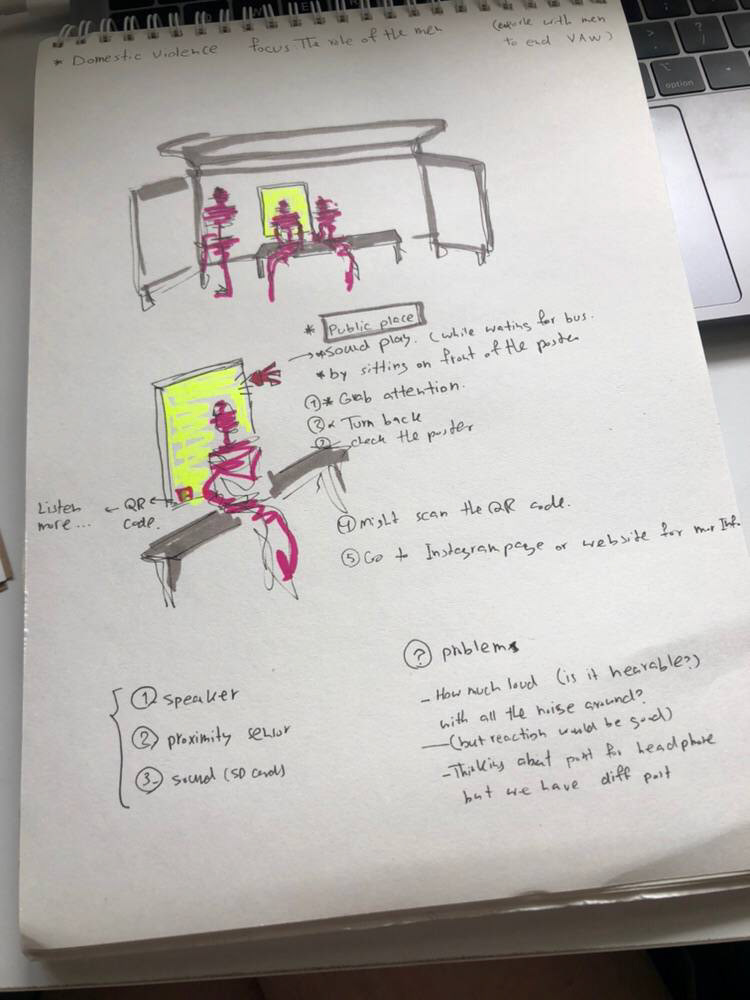 * Domestic Violence focus: The role of the men (work with men
to end VAW)
* Public place
→ *sound play. (while wating for bus.
*by sitting on front of the poster
① * Grab attention.
② * Turn back
③ check the poster
Listen more... ← QR code. ←
④ might scan the QR code.
⑤ Go to Instagram page or website for mor Info.
? problems
- How much loud (is it hearable?)
with all the noise around?
— (but reaction would be good)
- Thinking about port for headphone
but we have diff port
① speaker
② proximity sensor
③ sound (SD cards)
option